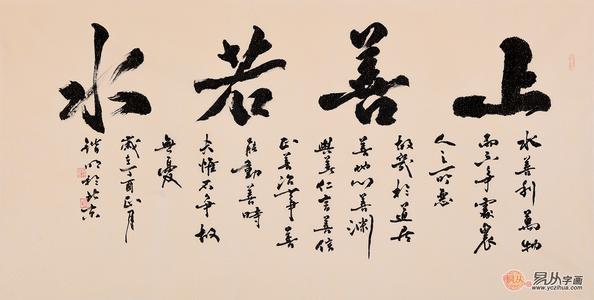 上善若水
水善利萬物
而不争處衆
人之所惡
故幾於道居
善地心善渊
與善仁言善信
正善治事善
能動善時
夫惟不争故
無憂
歲在丁酉正月
於北京
易从字画
www.yczihua.com